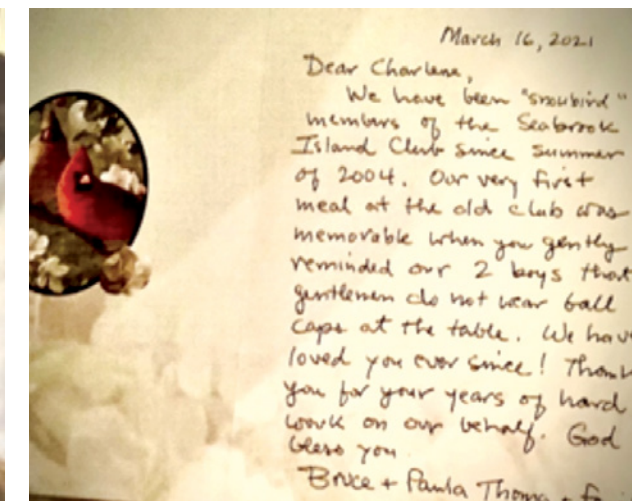 March 16, 2021
Dear Charlene,
We have been "snowbird"
members of the Seabrook
Island Club since summer
of 2004. Our very first
meal at the old club was
memorable when you gently
reminded our 2 boys that
gentlemen do not wear ball
caps at the table. We have
loved you ever since! Thank
you for your years of hard
work on our behalf. God
bless you
Bruce + Paula